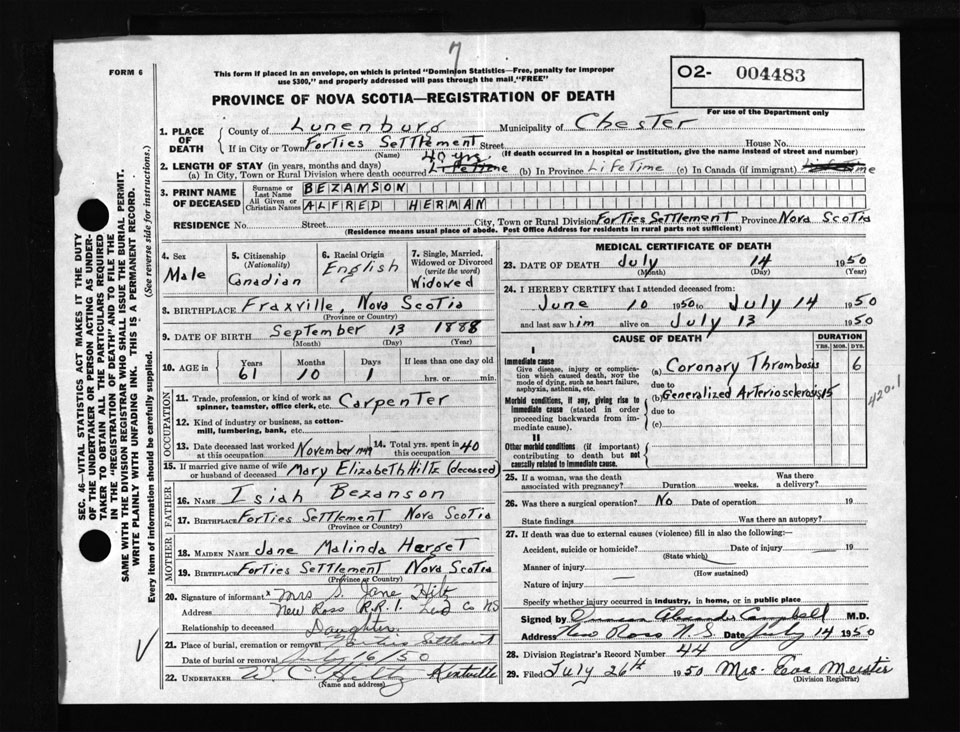 7
FORM 6
This form if placed in an envelope, on which is printed "Dominion Statistics—Free, penalty for improper
use $300," and properly addressed will pass through the mail "FREE"
O2- 004483
For use of the Department only
PROVINCE OF NOVA SCOTIA—REGISTRATION OF DEATH
1. PLACE OF DEATH County of Lunenburg Municipality of Chester
If in City or Town Forties Settlement Street House No.
(Name) (If death occurred in a hospital or institution, give the name instead of street and number)
2. LENGTH OF STAY (in years, months and days) 40 yrs.
(a) In City, Town or Rural Division where death occurred Lifetime (b) In Province Lifetime (c) In Canada (if immigrant) Lifetime
3. PRINT NAME OF DECEASED Surname or Last Name BEZANSON
All Given or Christian Names ALFRED HERMAN
RESIDENCE No. Street City, Town or Rural Division Forties Settlement Province Nova Scotia
(Residence means usual place of abode. Post Office Address for residents in rural parts not sufficient)
4. Sex Male
5. Citizenship (Nationality) Canadian
6. Racial Origin English
7. Single, Married, Widowed or Divorced (write the word) Widowed
8. BIRTHPLACE Fraxville, Nova Scotia
(Province or Country)
9. DATE OF BIRTH September 13 1888
(Month) (Day) (Year)
10. AGE in Years 61 Months 10 Days 1 If less than one day old hrs. or min.
OCCUPATION
11. Trade, profession, or kind of work as spinner, teamster, office clerk, etc. Carpenter
12. Kind of industry or business, as cotton-mill, lumbering, bank, etc.
13. Date deceased last worked at this occupation November 1949 14. Total yrs. spent in this occupation 40
15. If married give name of wife or husband of deceased Mary Elizabeth Hiltz (deceased)
FATHER
16. NAME Isiah Bezanson
17. BIRTHPLACE Forties Settlement Nova Scotia
(Province or Country)
MOTHER
18. MAIDEN NAME Jane Malinda Harget
19. BIRTHPLACE Forties Settlement Nova Scotia
(Province or Country)
20. Signature of informant x Mrs S. Jane Hiltz
Address New Ross R.R. 1. Lun Co NS
Relationship to deceased Daughter.
21. Place of burial, cremation or removal Forties Settlement
Date of burial or removal July 16/50
22. UNDERTAKER W. C. Hiltz Kentville
(Name and address)
MEDICAL CERTIFICATE OF DEATH
23. DATE OF DEATH July 14 1950
(Month) (Day) (Year)
24. I HEREBY CERTIFY that I attended deceased from:
June 10 1950 to July 14 1950
and last saw him alive on July 13 1950
CAUSE OF DEATH DURATION
YRS. MOS. DYS.
I
Immediate cause
Give disease, injury or complication which caused death, NOT the mode of dying, such as heart failure, asphyxia, asthenia, etc.
(a) Coronary Thrombosis 6
due to
Morbid conditions, if any, giving rise to immediate cause (stated in order proceeding backwards from immediate cause).
(b) Generalized Arteriosclerosis 15
due to
(c)
420.1
II
Other morbid conditions (if important) contributing to death but not causally related to immediate cause.
25. If a woman, was the death associated with pregnancy? Duration weeks. Was there a delivery?
26. Was there a surgical operation? No Date of operation 19
State findings Was there an autopsy?
27. If death was due to external causes (violence) fill in also the following:—
Accident, suicide or homicide? Date of injury — 19
(State which)
Manner of injury
(How sustained)
Nature of injury —
Specify whether injury occurred in industry, in home, or in public place
Signed by Duncan Alexander Campbell M.D.
Address New Ross N.S. Date July 14 1950
28. Division Registrar's Record Number 44
29. Filed July 26th 1950 Mrs. Eva Meister
(Division Registrar)
SEC. 46—VITAL STATISTICS ACT MAKES IT THE DUTY
OF THE UNDERTAKER OR PERSON ACTING AS UNDERTAKER TO OBTAIN ALL THE PARTICULARS REQUIRED
IN THE "REGISTRATION OF DEATH" AND TO FILE THE
SAME WITH THE DIVISION REGISTRAR WHO SHALL ISSUE THE BURIAL PERMIT.
WRITE PLAINLY WITH UNFADING INK. THIS IS A PERMANENT RECORD.
Every item of information should be carefully supplied. (See reverse side for instructions.)